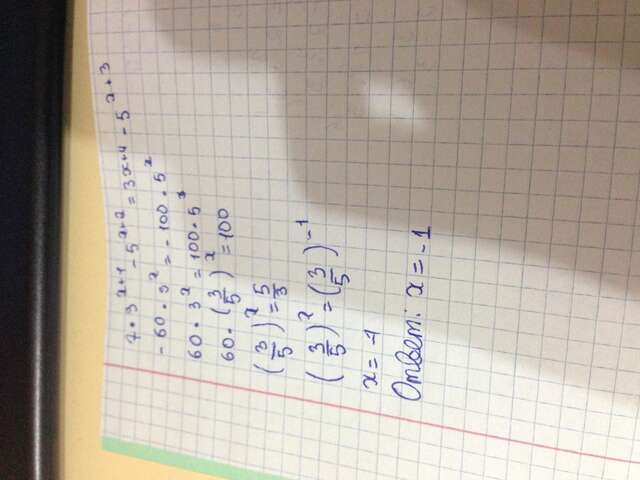 7 · 3^{x+1} - 5^{x+2} = 3^{x+4} - 5^{x+3}
-60 · 3^x = -100 · 5^x
60 · 3^x = 100 · 5^x
60 · (3/5)^x = 100
(3/5)^x = 5/3
(3/5)^x = (3/5)^{-1}
x = -1
Ответ: x = -1